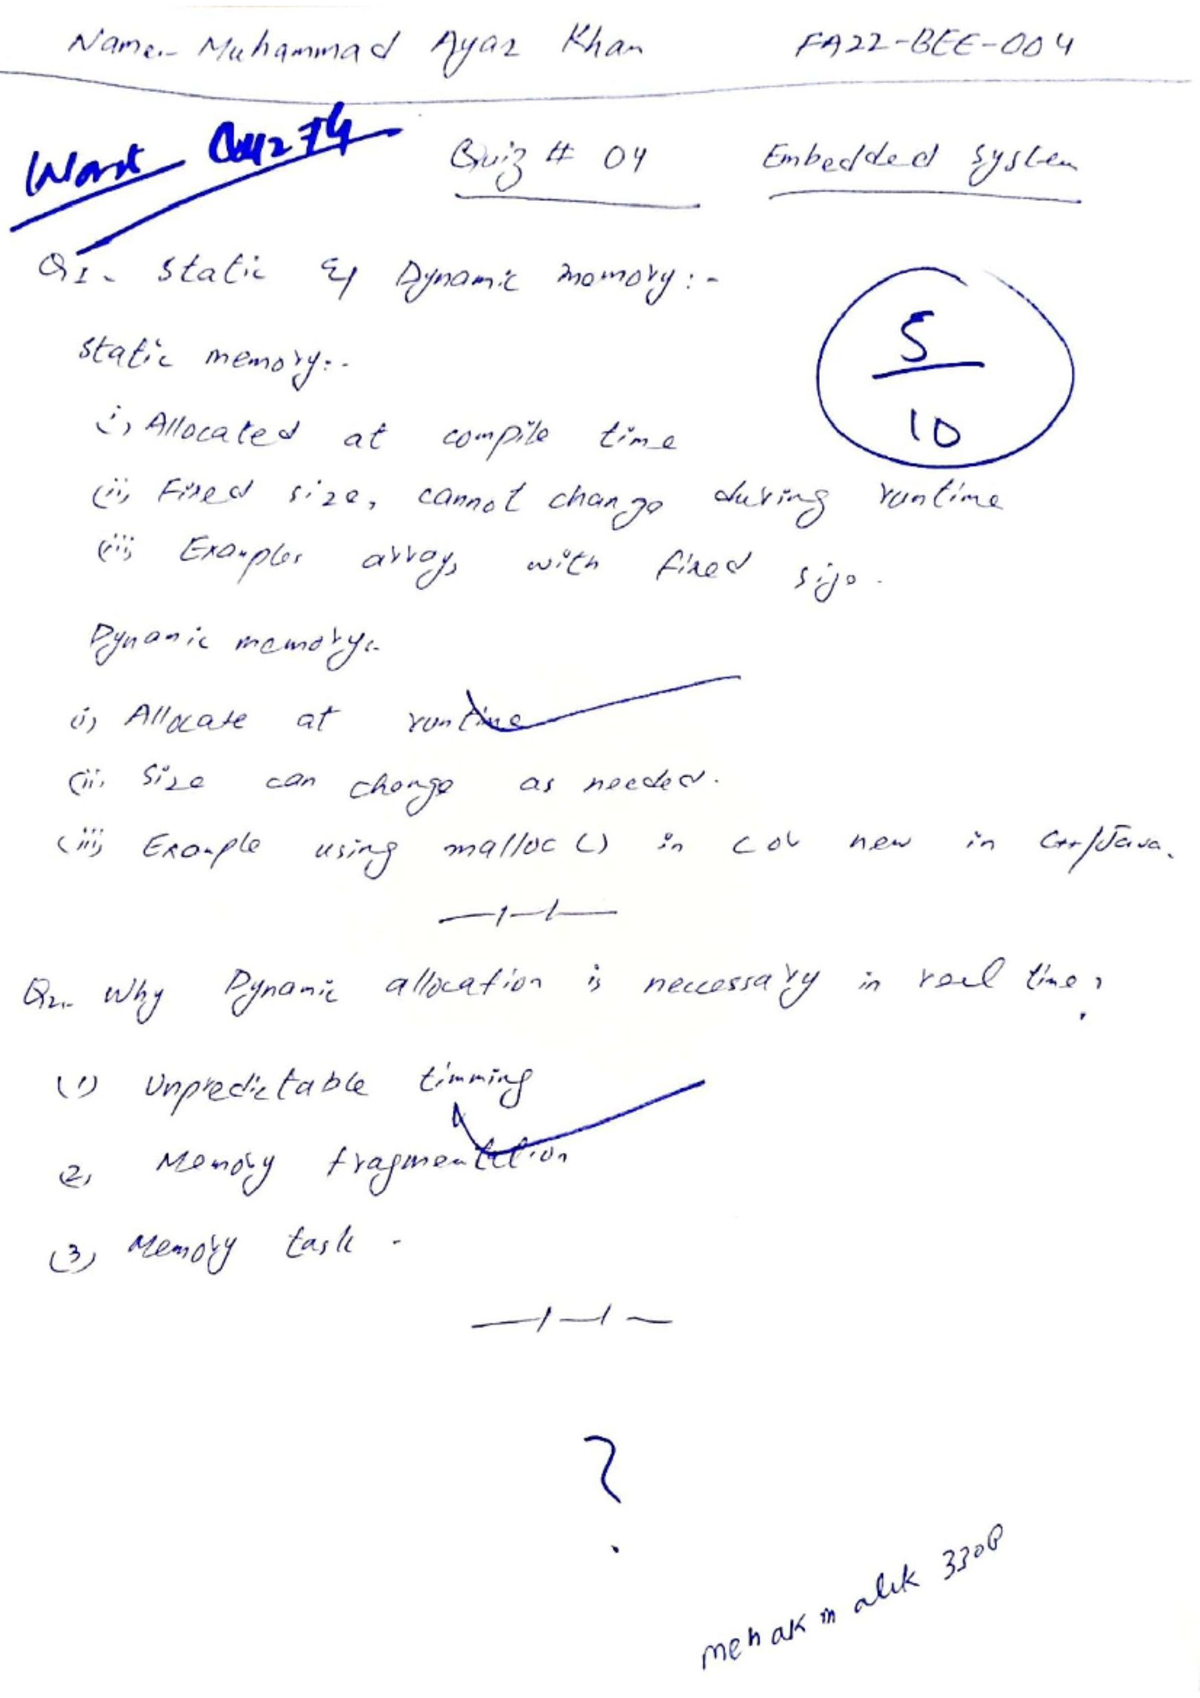 Name:- Muhammad Ayaz Khan FA22-BEE-004
Worst Quiz #4
Quiz # 04 Embedded System
Q1- Static & Dynamic momory:-
5/10
Static memory:-
i) Allocated at compile time
(ii) Fixed size, cannot change during runtime
(iii) Examples arrays with fixed size.
Dynamic memory:-
(i) Allocate at runtime
(ii) Size can change as needed.
(iii) Example using malloc() in C or new in C++/Java.
Q2- Why Dynamic allocation is neccessary in real time?
(1) Unpredictable timming
2) Memory fragmentation
(3) Memory task.
?
mehak malik 330B